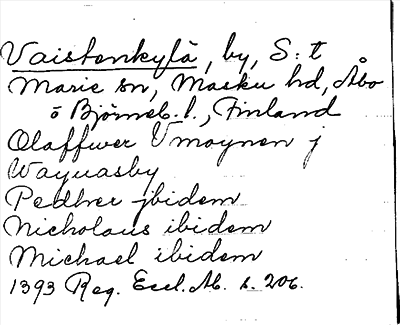 Vaistenkylä, by, S:t
Marie sn, Masku hd, Åbo
o Björneb. l., Finland
Olaffwer Vmoynen j
Wayuasby
Pedher jbidem
Nicholaus ibidem
Michael ibidem
1393 Reg. Eccl. Ab. s. 206.